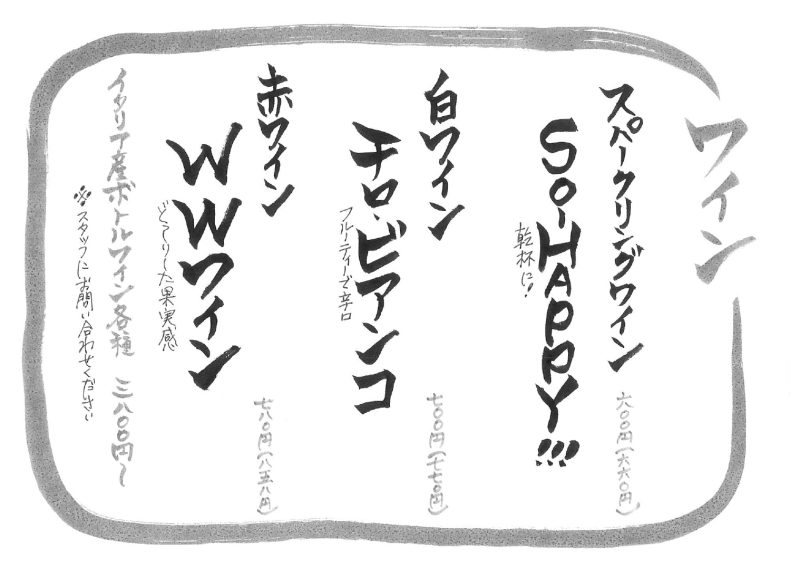 ワイン
スパークリングワイン
SO-HAPPY!!!
乾杯に!
六〇〇円(六六〇円)
白ワイン
チロ・ビアンコ
フルーティーで辛口
七〇〇円(七七〇円)
赤ワイン
WWワイン
どっしりした果実感
七八〇円(八五八円)
イタリア産ボトルワイン各種 三八〇〇円~
※スタッフにお問い合わせください